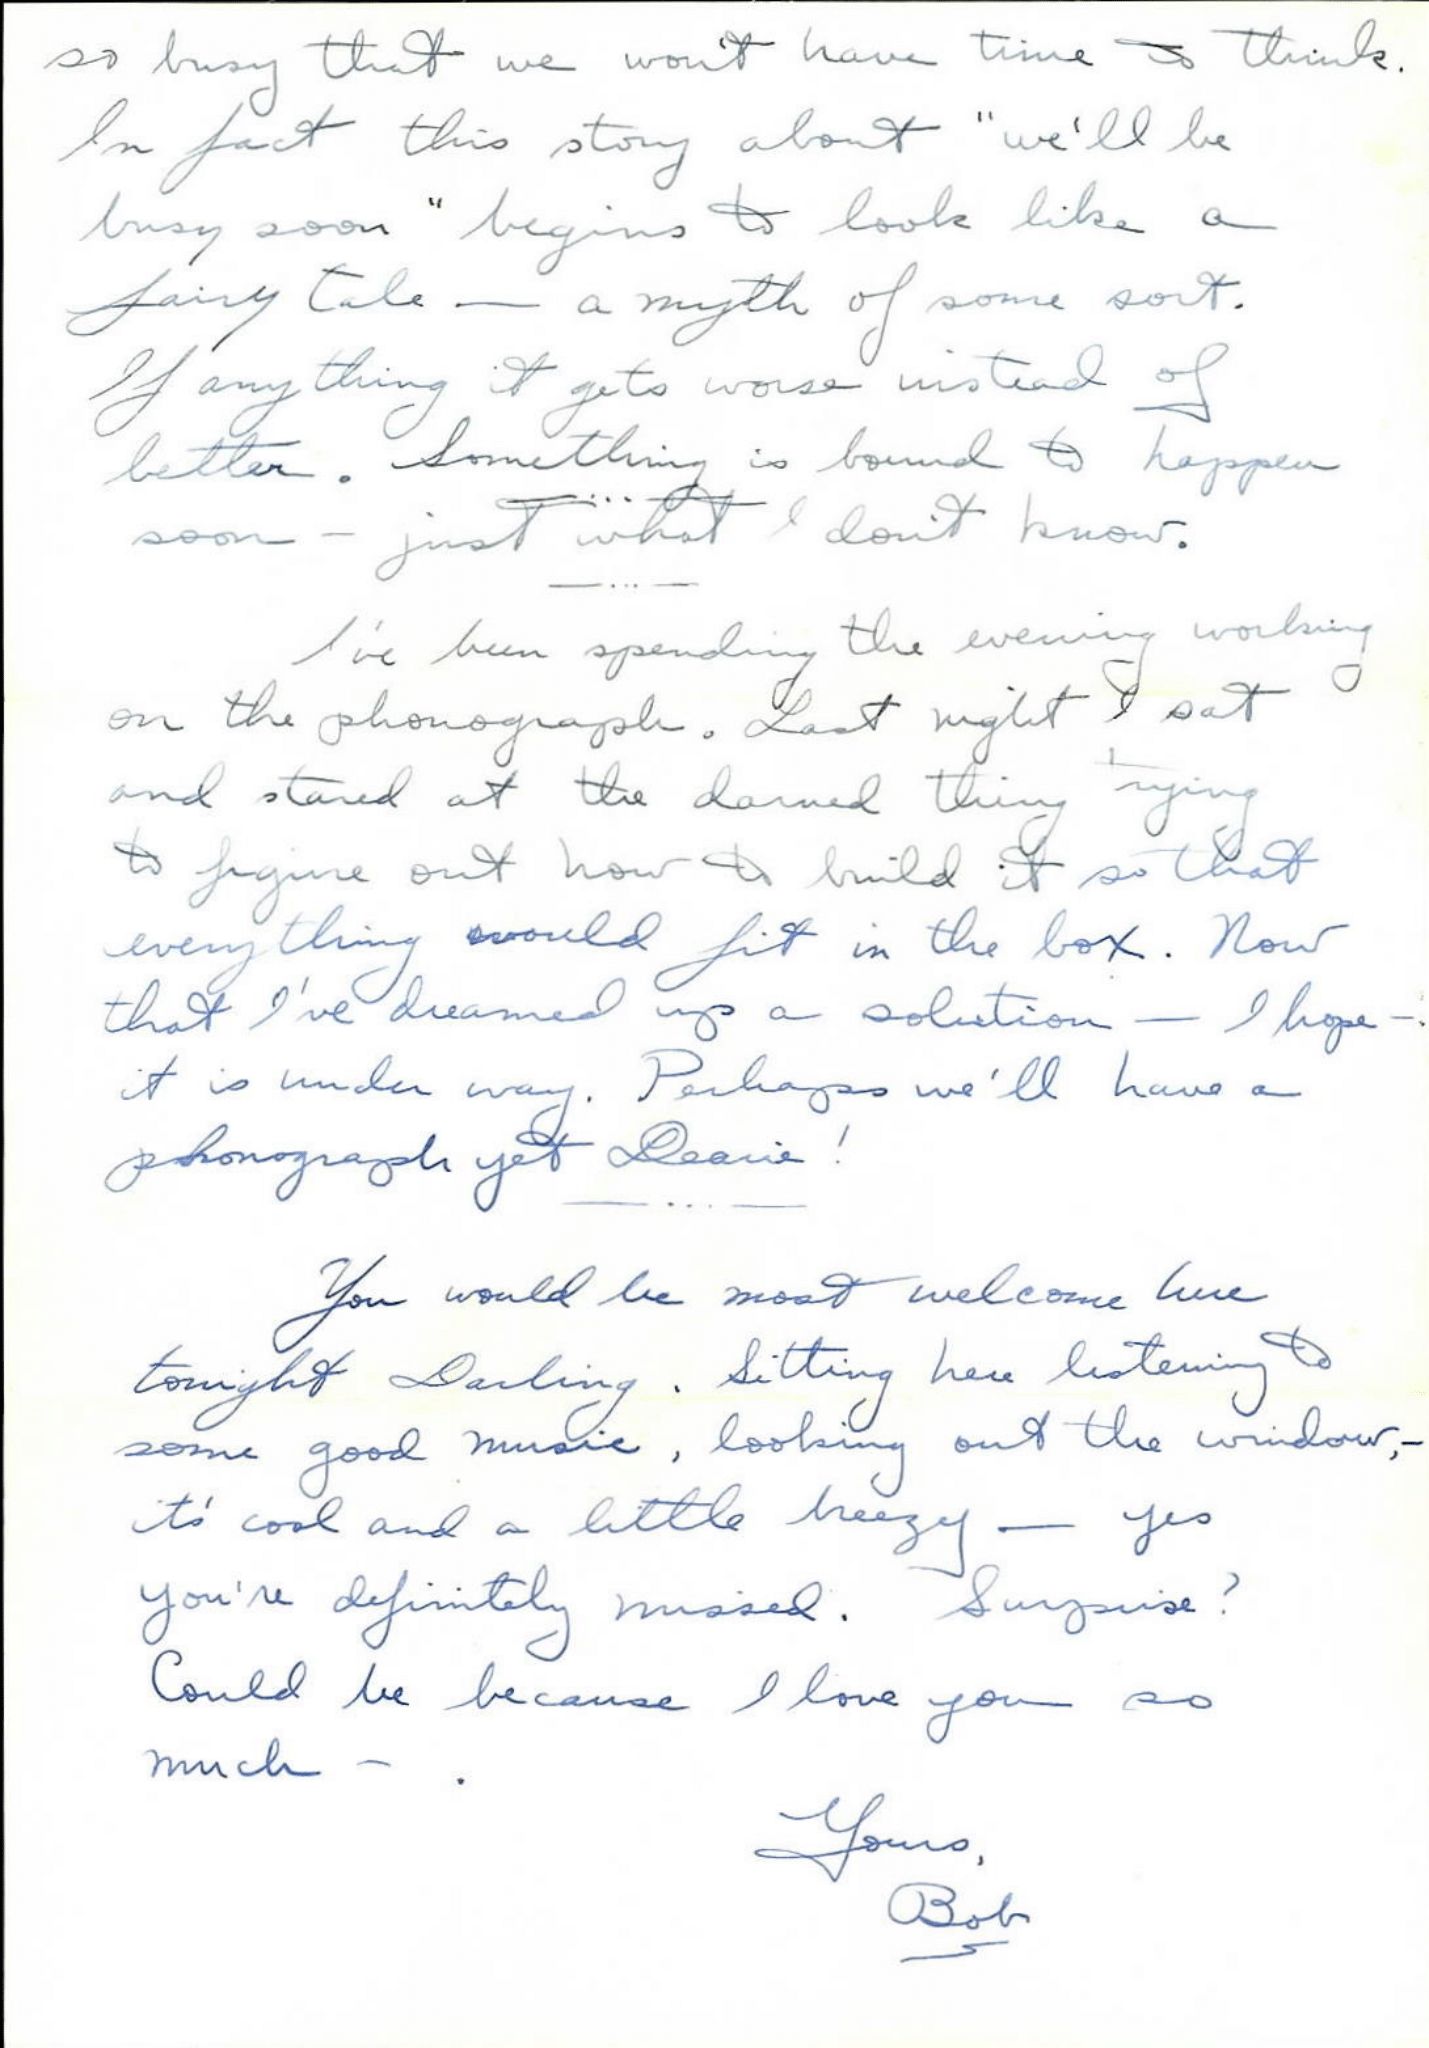 so busy that we won't have time to think.
In fact this story about "we'll be
busy soon" begins to look like a
fairy tale — a myth of some sort.
If anything it gets worse instead of
better. Something is bound to happen
soon — just what I don't know.
— ... —
I've been spending the evening working
on the phonograph. Last night I sat
and stared at the darned thing trying
to figure out how to build it so that
everything would fit in the box. Now
that I've dreamed up a solution — I hope —
it is under way. Perhaps we'll have a
phonograph yet Dearie!
— ... —
You would be most welcome here
tonight Darling. Sitting here listening to
some good music, looking out the window, —
it's cool and a little breezy — yes
you're definitely missed. Surprise?
Could be because I love you so
much — .
Yours,
Bob